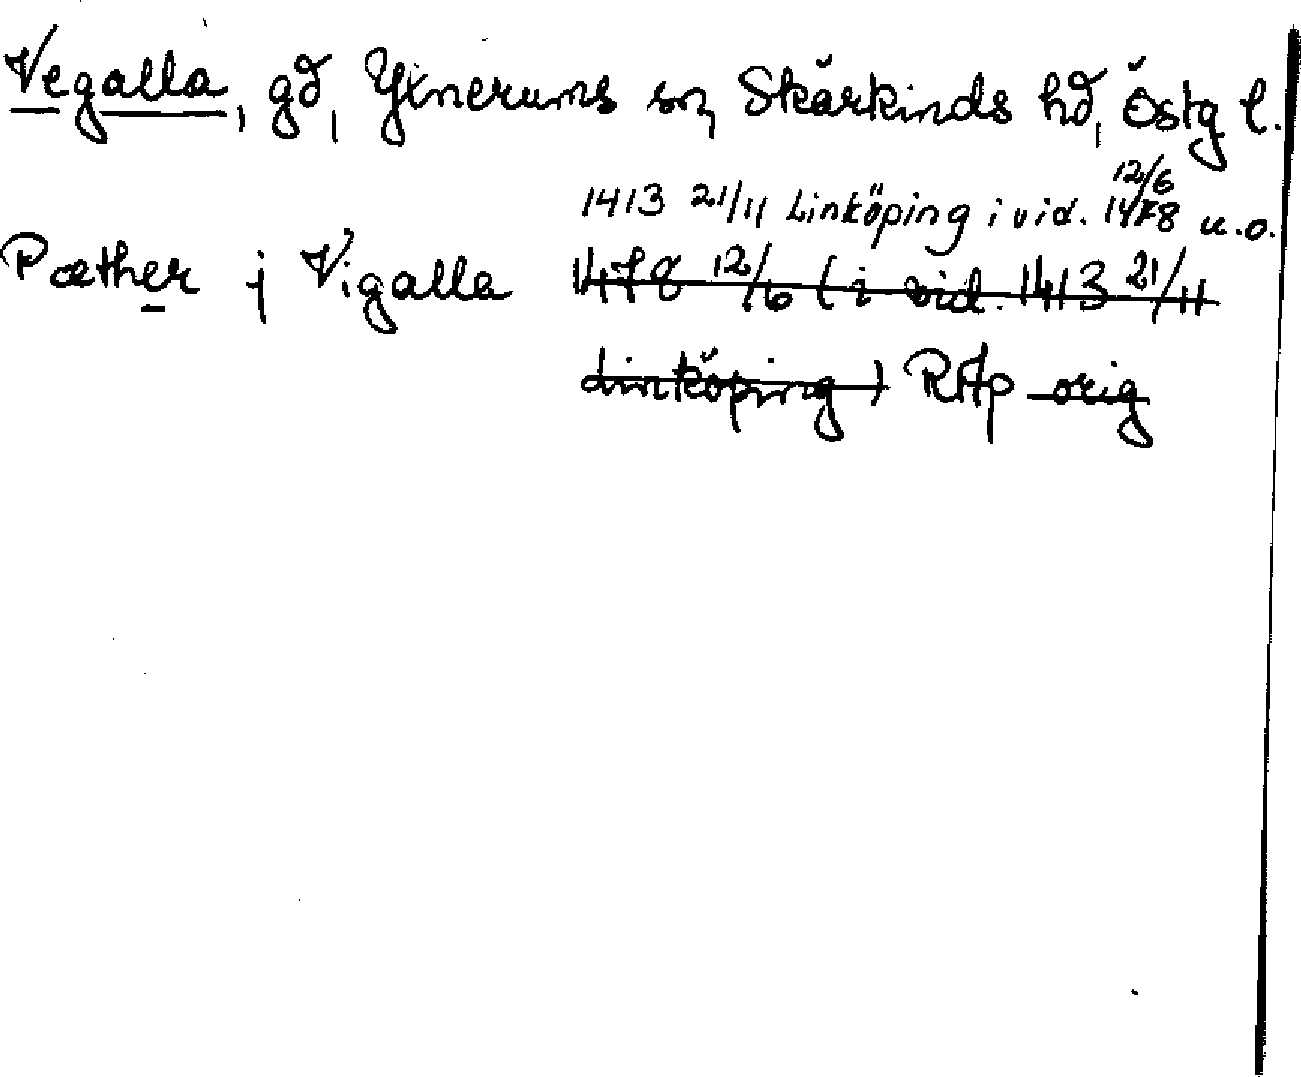 Vegalla, gd, Yxnerums sn, Skärkinds hd, Östg l.
1413 21/11 Linköping i vid. 1478 12/6 u.o.
Pæther j Vigalla 1478 12/6 (i vid. 1413 21/11
Linköping) RAp orig